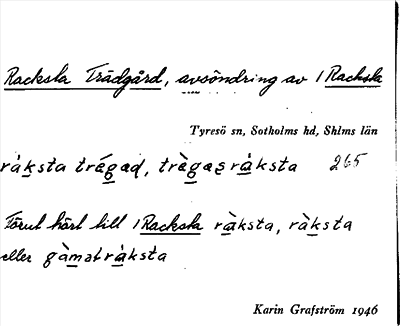 Racksta Trädgård, avsöndring av 1 Racksta
Tyresö sn, Sotholms hd, Shlms län
ràksta trégaḍ, trègaṣràksta 265
Förut hört till 1 Racksta ràksta, ràksta
eller gàmalràksta
Karin Grafström 1946